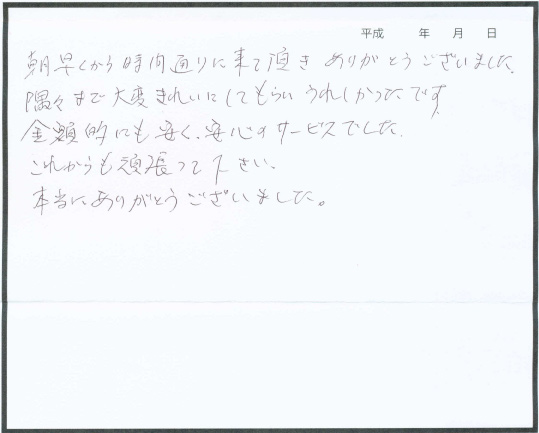 平成　年　月　日
朝早くから時間通りに来て頂きありがとうございました。
隅々まで大変きれいにしてもらいうれしかったです。
金額的にも安く、安心のサービスでした。
これからも頑張って下さい。
本当にありがとうございました。